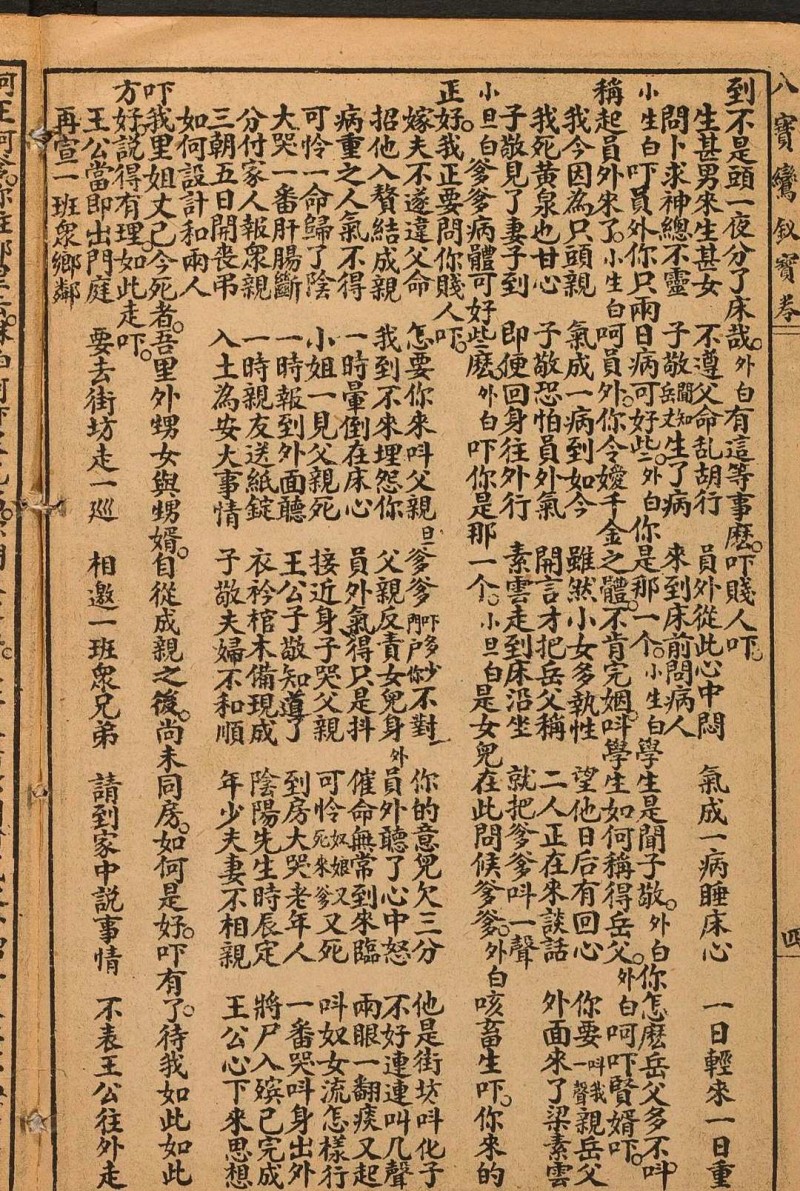 八寶鸞釵寶卷
四
到不是頭一夜分了床哉。外白有這等事麽。吓賤人吓。
生甚男來生甚女 不遵父命乱胡行 員外從此心中悶 氣成一病睡床心 一日輕來一日重
問卜求神總不靈 子敬聞知岳丈生了病 來到床前問病人
小生白吓員外你只兩日病可好些。外白你是那一个。小生白學生是閭子敬。外白你怎麽岳父多不呌
稱起員外來了。小生白呵員外。你令嬡千金之體。不肯完姻。呌學生如何稱得岳父。外白呵吓賢婿吓。
我今因為只頭親 氣成一病到如今 雖然小女多執性 望他日后有回心 你要呌我一聲親岳父
我死黃泉也甘心 子敬恐怕員外氣 開言才把岳父稱 二人正在來談話 外面來了梁素雲
子敬見了妻子到 即便回身往外行 素雲走到床沿坐 就把爹爹呌一聲
小旦白爹爹病體可好些麽。外白吓你是那一个。小旦白是女兒在此問候爹爹。外白咳畜生吓。你來的
正好。我正要問你賤人吓。
嫁夫不遂違父命 怎要你來呌父親 旦爹爹吓多少門戶你不對 你的意兒欠三分 他是街坊呌化子
招他入贅結成親 我到不來埋怨你 父親反責女兒身 外員外聽了心中怒 不好連連叫几聲
病重之人氣不得 一時暈倒在床心 員外氣得只是抖 催命無常到來臨 兩眼一翻痰又起
可怜一命歸了陰 小姐一見父親死 接近身子哭父親 可怜奴娘又死來爹又死 呌奴女流怎樣行
大哭一番肝腸斷 一時報到外面聽 王公子敬知道了 到房大哭老年人 一番哭呌身出外
分付家人報衆親 一時親友送紙錠 衣衿棺木備現成 陰陽先生時辰定 將尸入殯已完成
三朝五日開喪吊 入土為安大事情 子敬夫婦不和順 年少夫妻不相親 王公心下來思想
如何設計和兩人
吓我里姐丈已今死者。吾里外甥女與甥婿。自從成親之後。尚未同房。如何是好。吓有了。待我如此如此
方好。説得有理。如此走吓。
王公當即出門庭 要去街坊走一廵 相邀一班衆兄弟 請到家中説事情 不表王公往外走
再宣一班衆鄉鄰